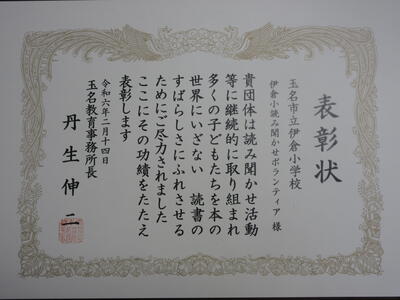 表彰状
玉名市立伊倉小学校
伊倉小読み聞かせボランティア 様
貴団体は読み聞かせ活動
等に継続的に取り組まれ
多くの子どもたちを本の
世界にいざない 読書の
すばらしさにふれさせる
ためにご尽力されました
ここにその功績をたたえ
表彰します
令和六年二月十四日
玉名教育事務所長
丹生伸二